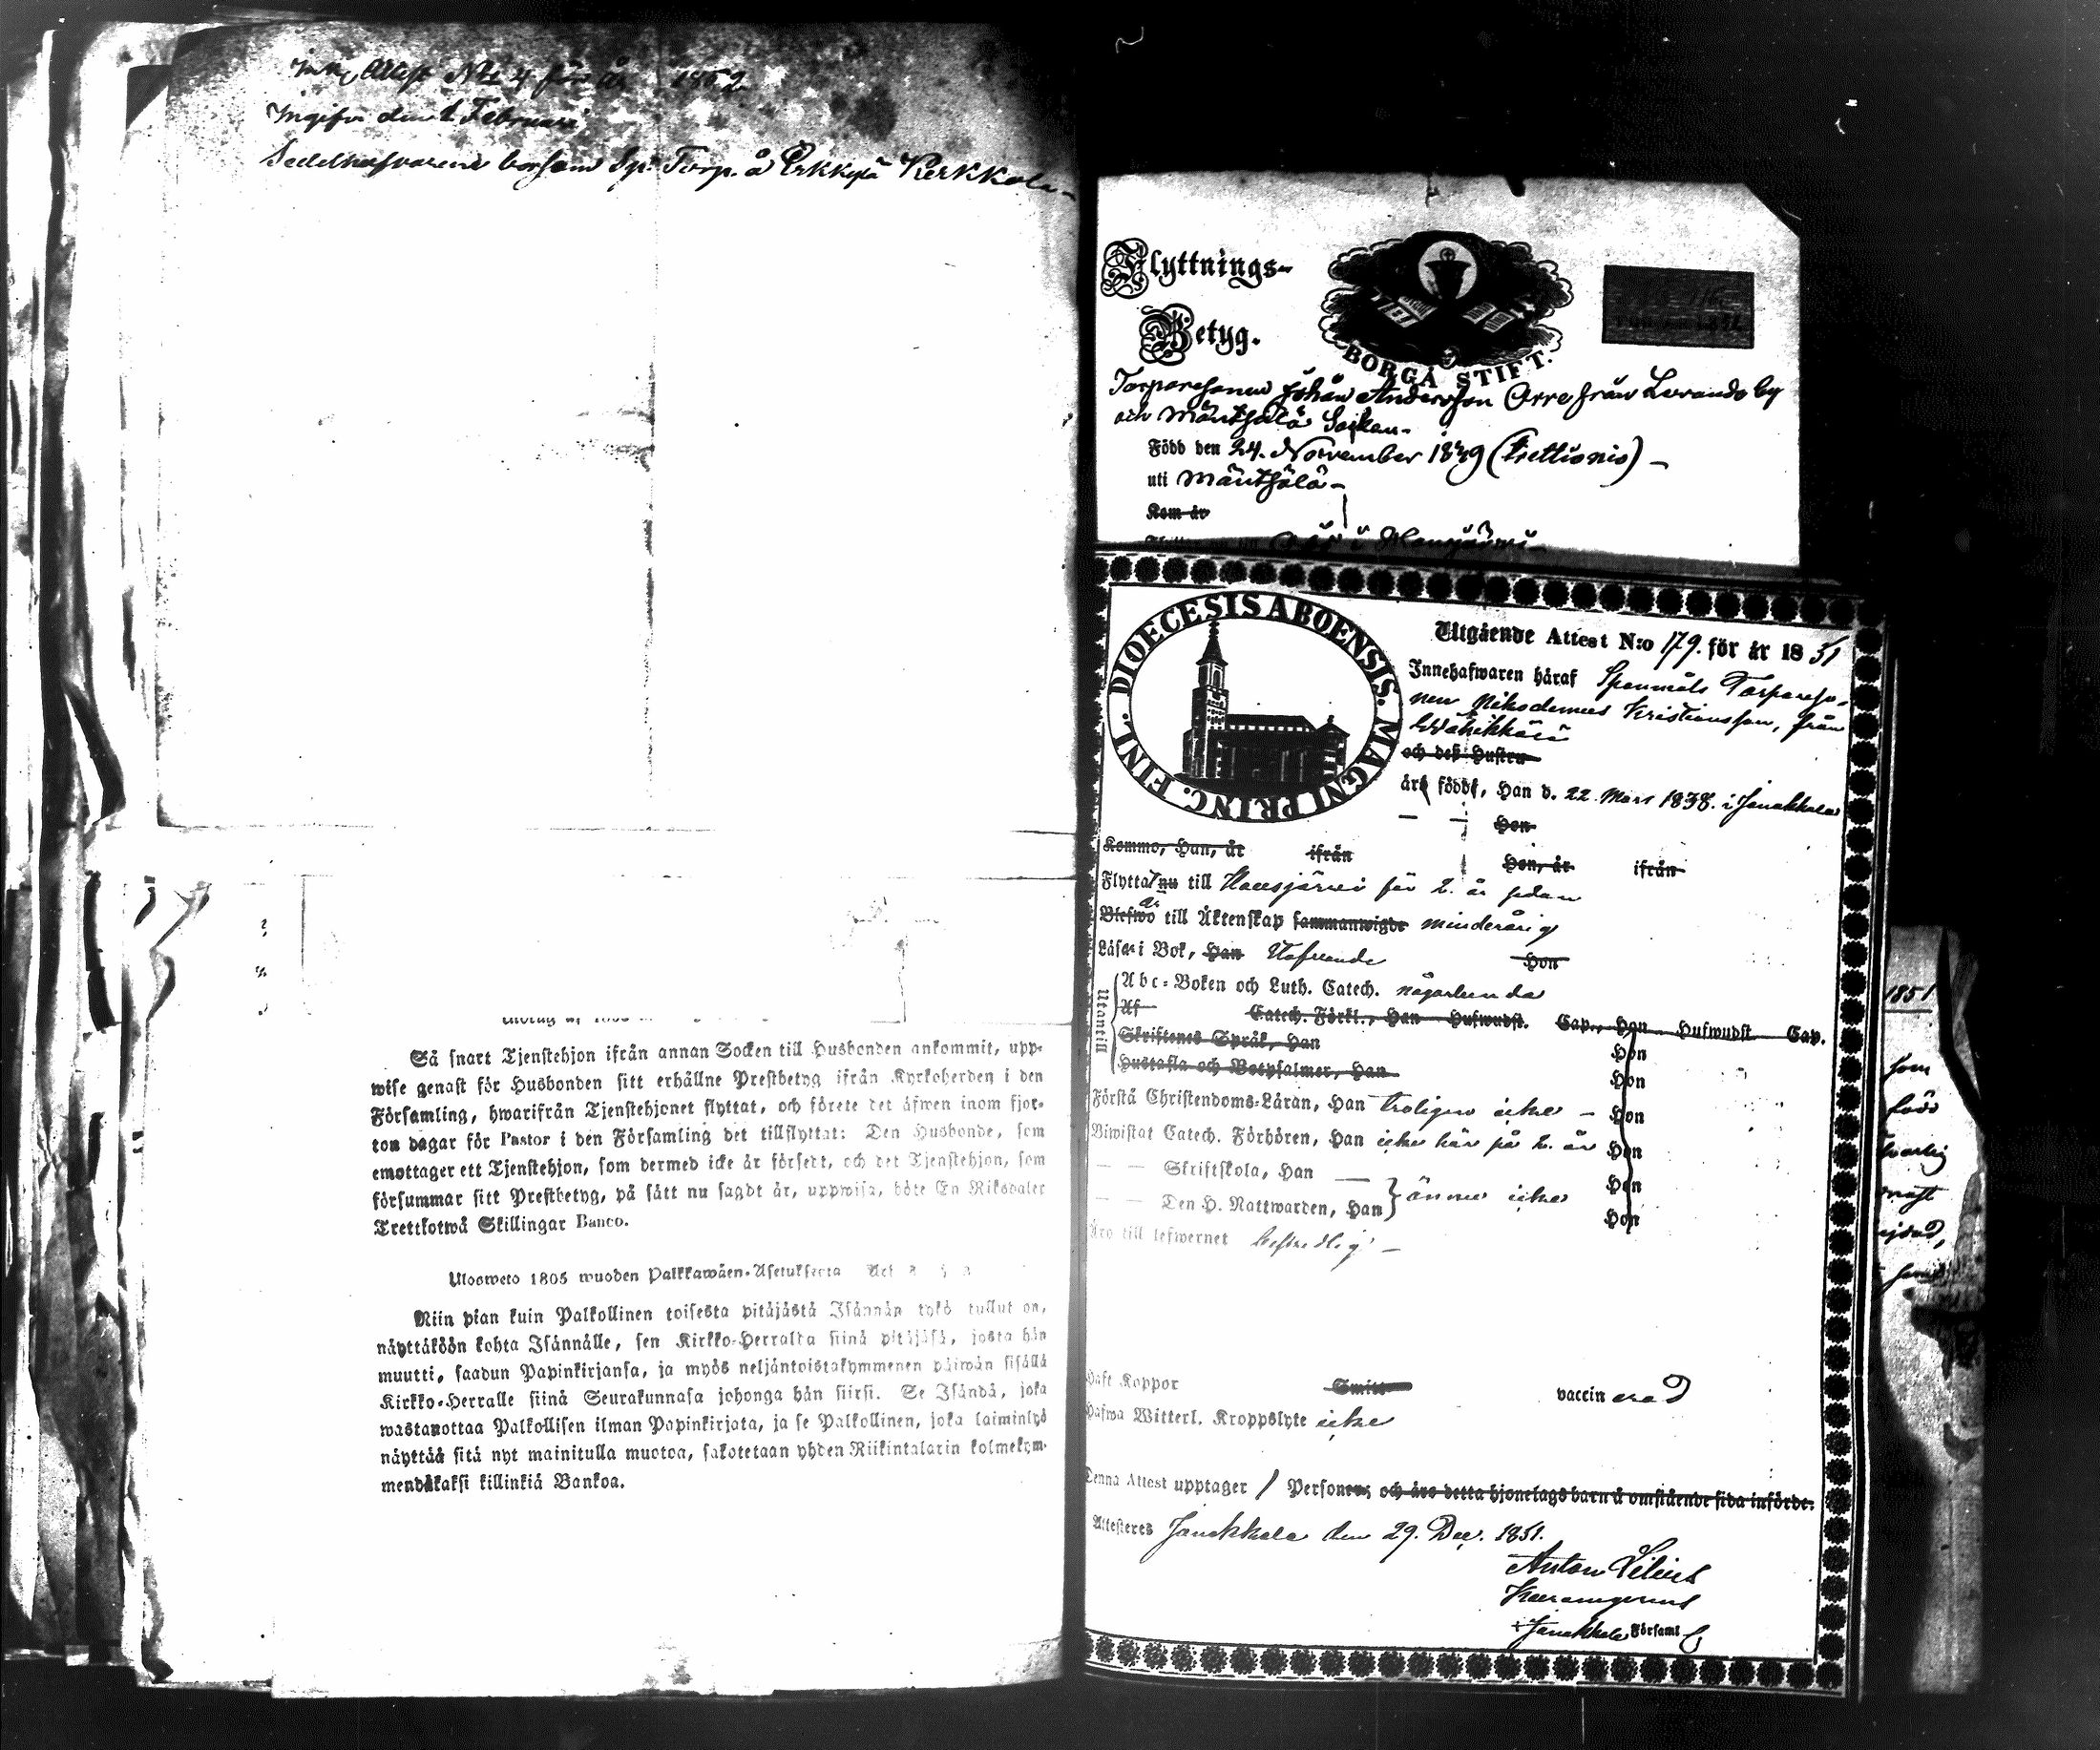 Ink. Attest No 4 för år 1852
Ingifven den 1 Februari
Sedelhafvaren borsom Sp. Torp. å Erkkylä Kerkkola
Så snart Tjenstehjon ifrån annan Socken till Husbonden ankommit, upp-
wise genast för Husbonden sitt erhållne Prestbetyg ifrån Kyrkoherden i den
Församling, hwarifrån Tjenstehjonet flyttat, och förete det äfwen inom fjor-
ton dagar för Pastor i den Församling det tillflyttat: Den Husbonde, som
emottager ett Tjenstehjon, som dermed icke är försedt, och det Tjenstehjon, som
försummar sitt Prestbetyg, på sätt nu sagdt är, uppwisa, böte En Riksdaler
Trettiotwå Skillingar Banco.
Ulosweto 1805 wuoden Palkkawäen-Asetuksesta
Niin pian kuin Palkollinen toisesta pitäjästä Isännän tykö tullut on,
näyttäköön kohta Isännälle, sen Kirkko-Herralta siinä pitäjäsä, josta hän
muutti, saadun Papinkirjansa, ja myös neljäntoistakymmenen päiwän sisällä
Kirkko-Herralle siinä Seurakunnasa johonga hän siirsi. Se Isändä, joka
wastanottaa Palkollisen ilman Papinkirjata, ja se Palkollinen, joka laiminlyö
näyttää sitä nyt mainitulla muotoa, sakotetaan yhden Riikintalarin kolmekym-
mendäkaksi killinkiä Bankoa.
Flyttnings-
Betyg.
BORGÅ STIFT.
Torparesonen Johan Andersson Orre från Levando by
och Mäntsälä Socken.
Född den 24. November 1839 (trettionio)
uti Mäntsälä
Kom år
DIOECESIS ABOENSIS. MAGNI PRINC. FINL.
Utgående Attest N:o 179. för år 1851
Innehafwaren häraf Spanmåls Torpareso-
nen Nikodemus Kristiansson, från
Wähikkälä
och deß Hustru
äro födde, Han d. 22 Mars 1838. i Janakkala
Hon
Kommo, Han, år ifrån Hon, år ifrån
Flyttat nu till Hausjärvi för 2. år sedan
Blefwo är till Äktenskap sammanwigde minderårig
Läsa i Bok, Han Stafvande Hon
Utontill
Abc-Boken och Luth. Catech. någorlunda
Af Catech. Förkl., Han Hufwudst. Cap., Hon Hufwudst. Cap.
Skriftenes Språk, Han Hon
Hustafla och Botpsalmer, Han Hon
Förstå Christendoms-Läran, Han troligen icke Hon
Biwistat Catech. Förhören, Han icke här på 2. år Hon
Skriftskola, Han Hon
Den H. Nattwarden, Han ännu icke Hon
Äro till lefwernet beskedlig
Haft Koppor Smitt vaccinerad
Hafwa Witterl. Kroppslyte icke
Denna Attest upptager 1 Personer; och äro detta hjonelags barn å omstående sida införde.
Attesteres Janakkala den 29. Dec. 1851.
Anton Lilius
i Janakkala Församl
1851
som